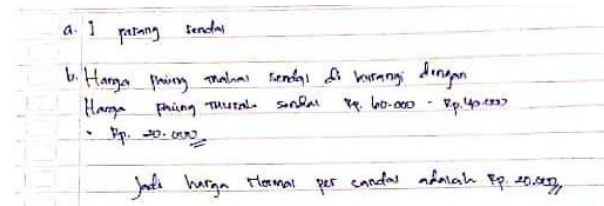 a. 1 pasang sendal
b. Harga paling mahal sendal di kurangi dengan
Harga paling murah sendal Rp. 60.000 - Rp. 40.000
= Rp. 20.000
Jadi harga normal per sandal adalah Rp. 20.000